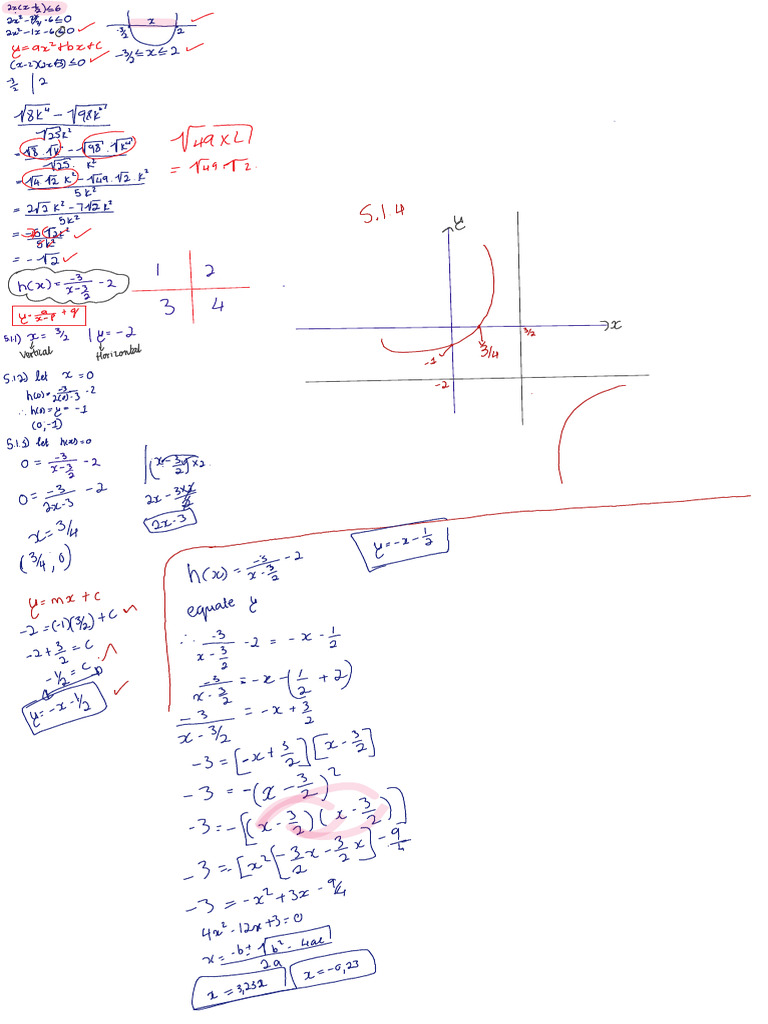 2x(x-½)≤6
2x²-2x/2-6≤0
2x²-1x-6≤0
y=ax²+bx+c
(x-2)(2x+3)≤0
-3/2 | 2
x
-3/2 2
-3/2≤x≤2
(√8k⁴-√98k⁴)/√25k²
=(√8.√k⁴-√98.√k⁴)/(√25.k²)
=(√4.√2k²-√49.√2.k²)/5k²
=(2√2k²-7√2k²)/5k²
=-5√2k²/5k²
=-√2
√49×2
=√49.√2.
h(x)=-3/(x-3/2)-2
y=a/(x-p)+q
1 2
3 4
5.1.1) x=3/2 | y=-2
Vertical Horizontal
5.1.2) let x=0
h(0)=-3/(2(0)-3)-2
∴h(0)=y=-1
(0,-1)
5.1.3) let h(x)=0
0=-3/(x-3/2)-2
0=-3/(2x-3)-2
x=3/4
(3/4;0)
(x-3/2)×2
2x-3×2/2
2x-3
5.1.4
y
x
-1
3/4
3/2
-2
y=mx+c
-2=(-1)(3/2)+c
-2+3/2=c
-1/2=c
y=-x-1/2
h(x)=-3/(x-3/2)-2
y=-x-1/2
equate y
∴-3/(x-3/2)-2=-x-1/2
-3/(x-3/2)=-x-(1/2+2)
-3/(x-3/2)=-x+3/2
-3=[-x+3/2][x-3/2]
-3=-(x-3/2)²
-3=-[(x-3/2)(x-3/2)]
-3=-[x²[-3/2x-3/2x]-9/4
-3=-x²+3x-9/4
4x²-12x+3=0
x=(-b±√b²-4ac)/2a
x=3,23x
x=-0,23